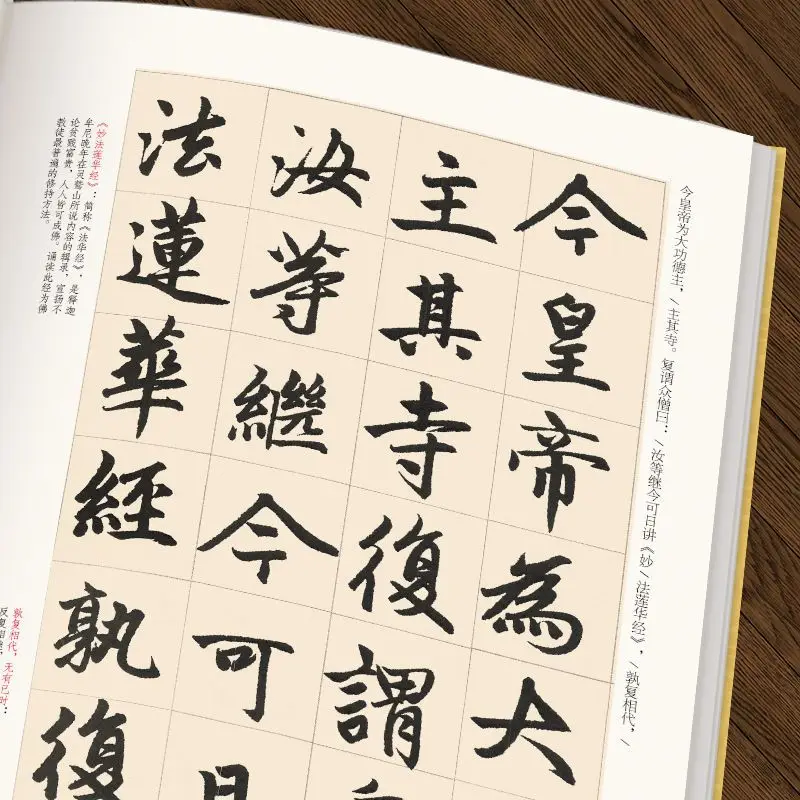 今皇帝为大功德主，/主其寺。复谓众僧曰：/汝等继今可日讲《妙/法莲华经》，/孰复相代，/
今皇帝為大
主其寺復謂
汝等繼今可
法蓮華經孰復
《妙法莲华经》：简称《法华经》，是释迦
牟尼晚年在灵鹫山所说内容的辑录，宣扬不
论贫贱富贵，人人皆可成佛。诵读此经为佛
教徒最普遍的修持方法。
孰复相代，无有已时：